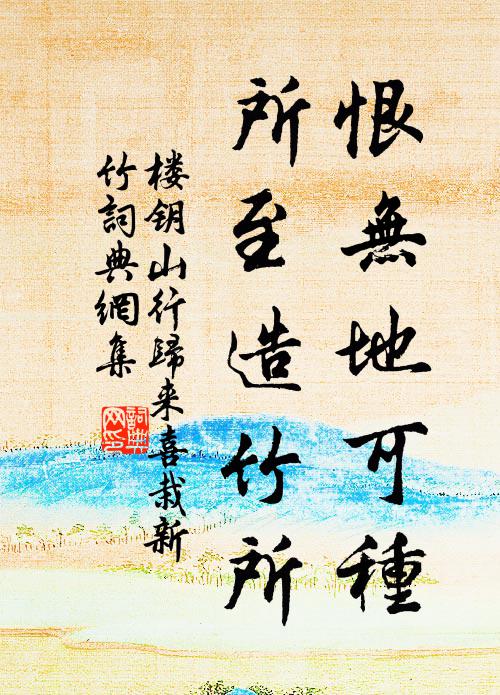 恨無地可種
所至造竹所
楼钥山行歸来喜栽新
竹詞典網集
詞典网印